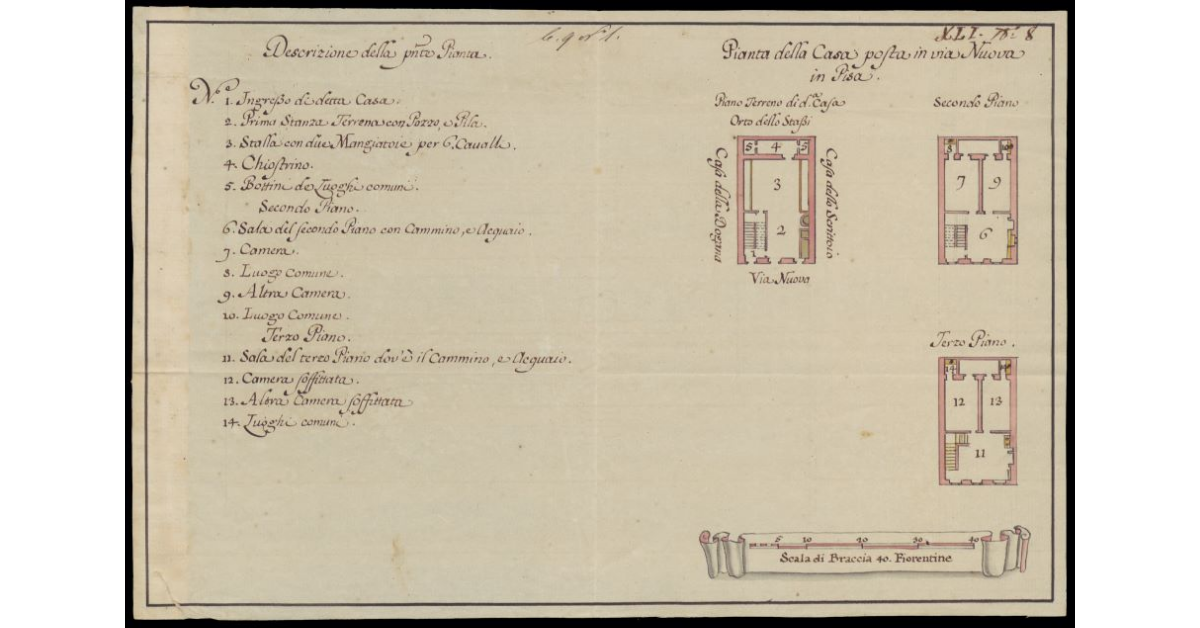 6. 9 n.° 1.
XLI. N.° 8
Descrizione della pn̄te Pianta.
N.° 1. Ingresso de detta Casa.
2. Prima Stanza Terrena con Pozzo, e Pila.
3. Stalla con due Mangiatoie per 6. Cavalli.
4. Chiostrino.
5. Bottini de Luoghi comuni.
Secondo Piano.
6. Sala del secondo Piano con Cammino, e Acquaio.
7. Camera.
8. Luogo comune.
9. Altra Camera.
10. Luogo Comune.
Terzo Piano.
11. Sala del terzo Piano dov'è il Cammino, e Acquaio.
12. Camera soffittata.
13. Altra Camera soffittata
14. Luoghi comuni.
Pianta della Casa posta in via Nuova
in Pisa.
Piano Terreno di d.ª Casa
Orto dello Stassi
5 4 5
3
2
1
Casa della Dogana
Casa dello Scrittoio
Via Nuova
Secondo Piano
8 10
7 9
6
Terzo Piano.
14 14
12 13
11
5 10 20 30 40
Scala di Braccia 40. Fiorentine